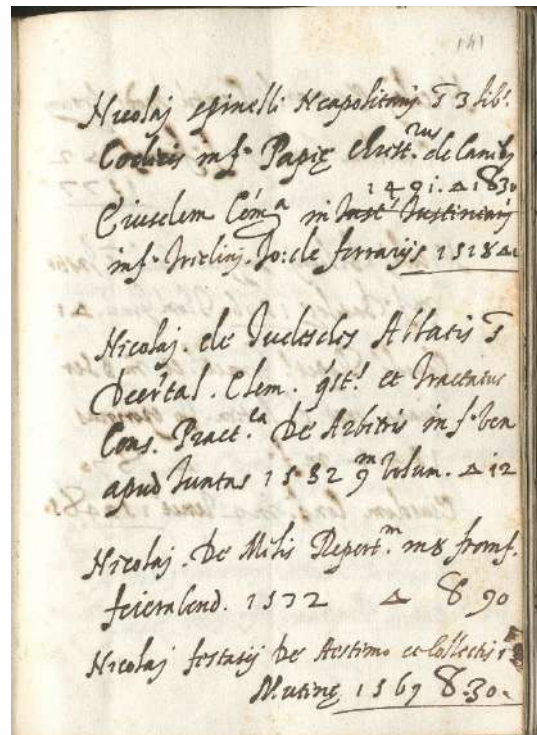 141
Nicolaj spinelli Neapolitanj 3 lib.
Codicis in f.° Papię Christ.rus de Canib9
1491. △ 1 8 30
Eiusdem Com.a in Inst. Justinianj
in f.° Tridinj. Jo: de ferrarijs 1518 △
Nicolaj. de Tudeschis Abbatis
Decretal. Clem. qst. et Tractatus
Cons. Pract.ca De Arbitris in f.° Ven
apud Juntas 1582 9 Volum. △ 12
Nicolaj. De Milis Repert.m in 8 fromf.
feieralend. 1572 △ 8 90
Nicolaj festasij De Aestimo et Collectis
Mutinę 1567 8.30.